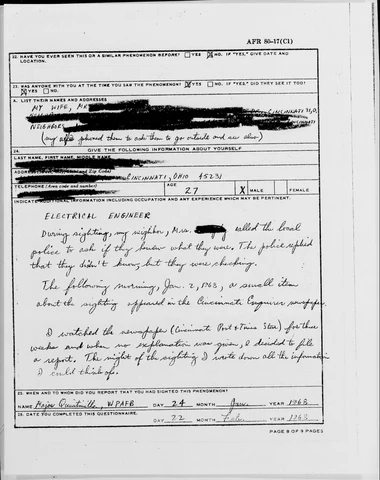 AFR 80-17(C1)
22. HAVE YOU EVER SEEN THIS OR A SIMILAR PHENOMENON BEFORE? YES X NO. IF "YES," GIVE DATE AND
LOCATION.
23. WAS ANYONE WITH YOU AT THE TIME YOU SAW THE PHENOMENON? X YES NO. IF "YES," DID THEY SEE IT TOO?
X YES NO.
A. LIST THEIR NAMES AND ADDRESSES
MY WIFE, MR
CINCINNATI 31, O.
NEIGHBOR CINCINNATI
(my wife phoned them to ask them to go outside and see also)
24. GIVE THE FOLLOWING INFORMATION ABOUT YOURSELF
LAST NAME, FIRST NAME, MIDDLE NAME
CINCINNATI, OHIO 45231
TELEPHONE (Area code and number) AGE
27 X MALE FEMALE
INDICATE ADDITIONAL INFORMATION INCLUDING OCCUPATION AND ANY EXPERIENCE WHICH MAY BE PERTINENT.
ELECTRICAL ENGINEER
During sighting, my neighbor, Mrs. called the local
police to ask if they knew what they were. The police replied
that they didn't know, but they were checking.
The following morning, Jan. 2, 1968, a small item
about the sighting appeared in the Cincinnati Enquirer newspaper.
I watched the newspaper (Cincinnati Post & Times Star) for three
weeks and when no explanation was given, I decided to file
a report. The night of the sighting I wrote down all the information
I could think of.
25. WHEN AND TO WHOM DID YOU REPORT THAT YOU HAD SIGHTED THIS PHENOMENON?
NAME Major Quintanilla, WPAFB DAY 24 MONTH Jan. YEAR 1968
26. DATE YOU COMPLETED THIS QUESTIONNAIRE. DAY 22 MONTH Feb. YEAR 1968